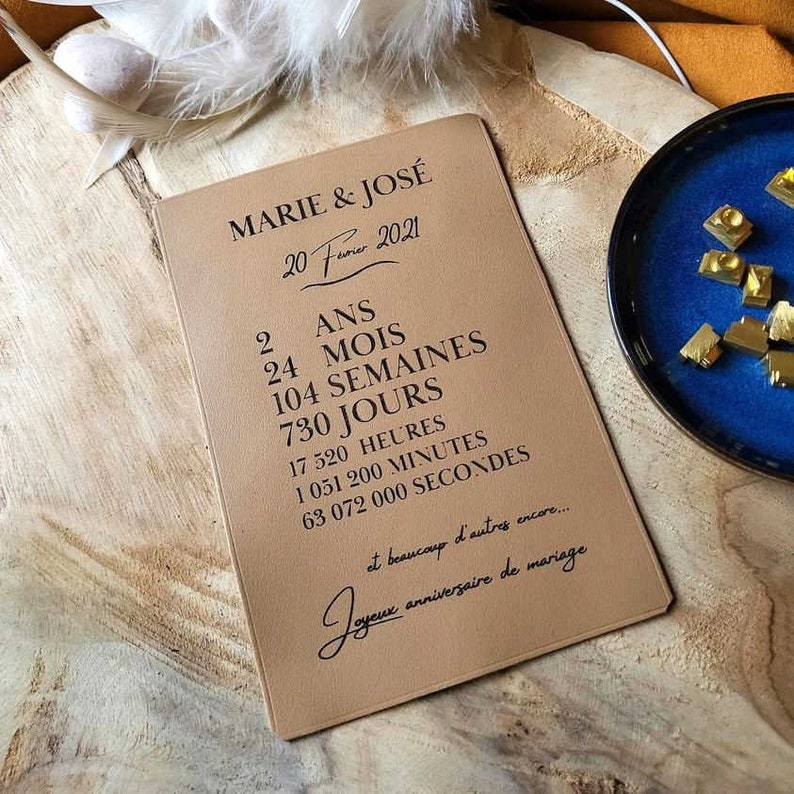 MARIE & JOSÉ
20 Février 2021
2 ANS
24 MOIS
104 SEMAINES
730 JOURS
17 520 HEURES
1 051 200 MINUTES
63 072 000 SECONDES
et beaucoup d'autres encore...
Joyeux anniversaire de mariage